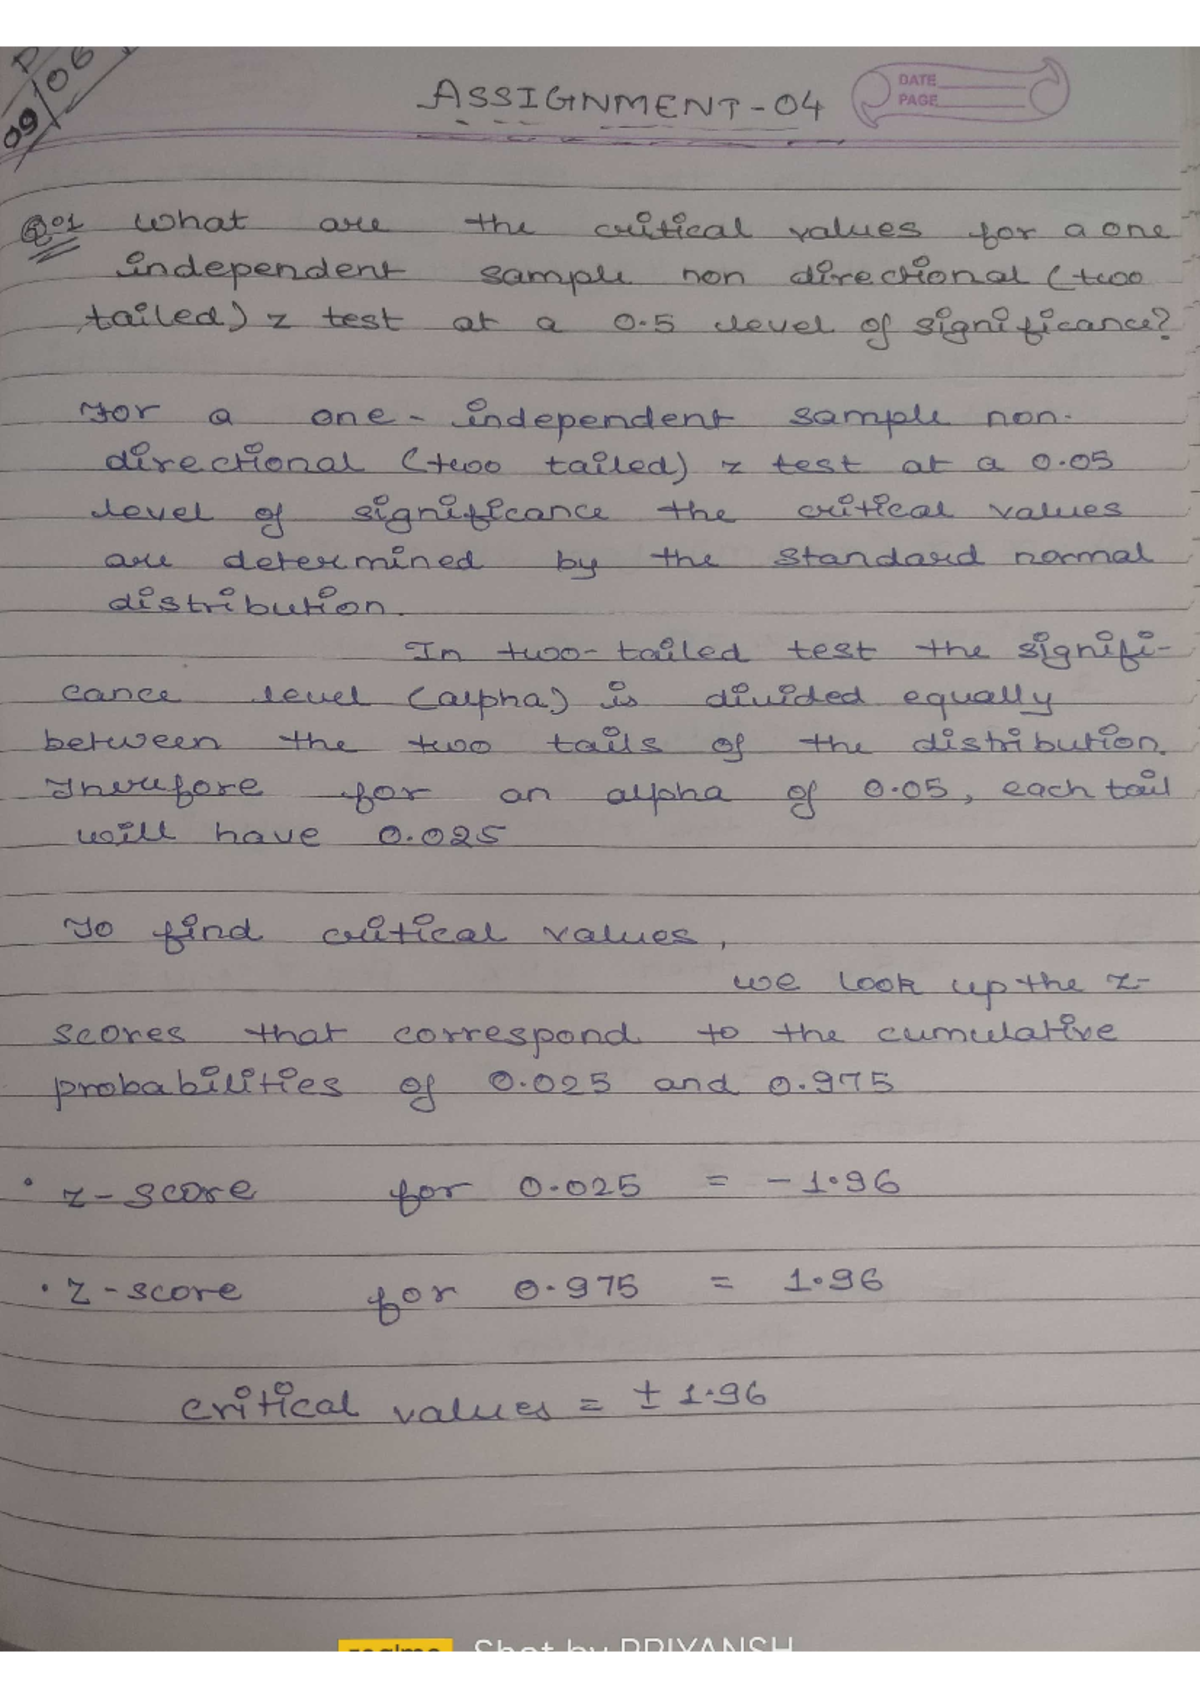 09/06
ASSIGNMENT-04
DATE
PAGE
Q01 What are the critical values for a one
independent sample non directional (two
tailed) z test at a 0.5 level of significance?
For a one-independent sample non-
directional (two tailed) z test at a 0.05
level of significance the critical values
are determined by the standard normal
distribution.
In two-tailed test the signifi-
cance level (alpha) is divided equally
between the two tails of the distribution.
Therefore for an alpha of 0.05, each tail
will have 0.025
To find critical values,
we look up the z-
scores that correspond to the cumulative
probabilities of 0.025 and 0.975
• z-score for 0.025 = -1.96
• z-score for 0.975 = 1.96
critical values = ± 1.96
realme Shot by PRIYANSH